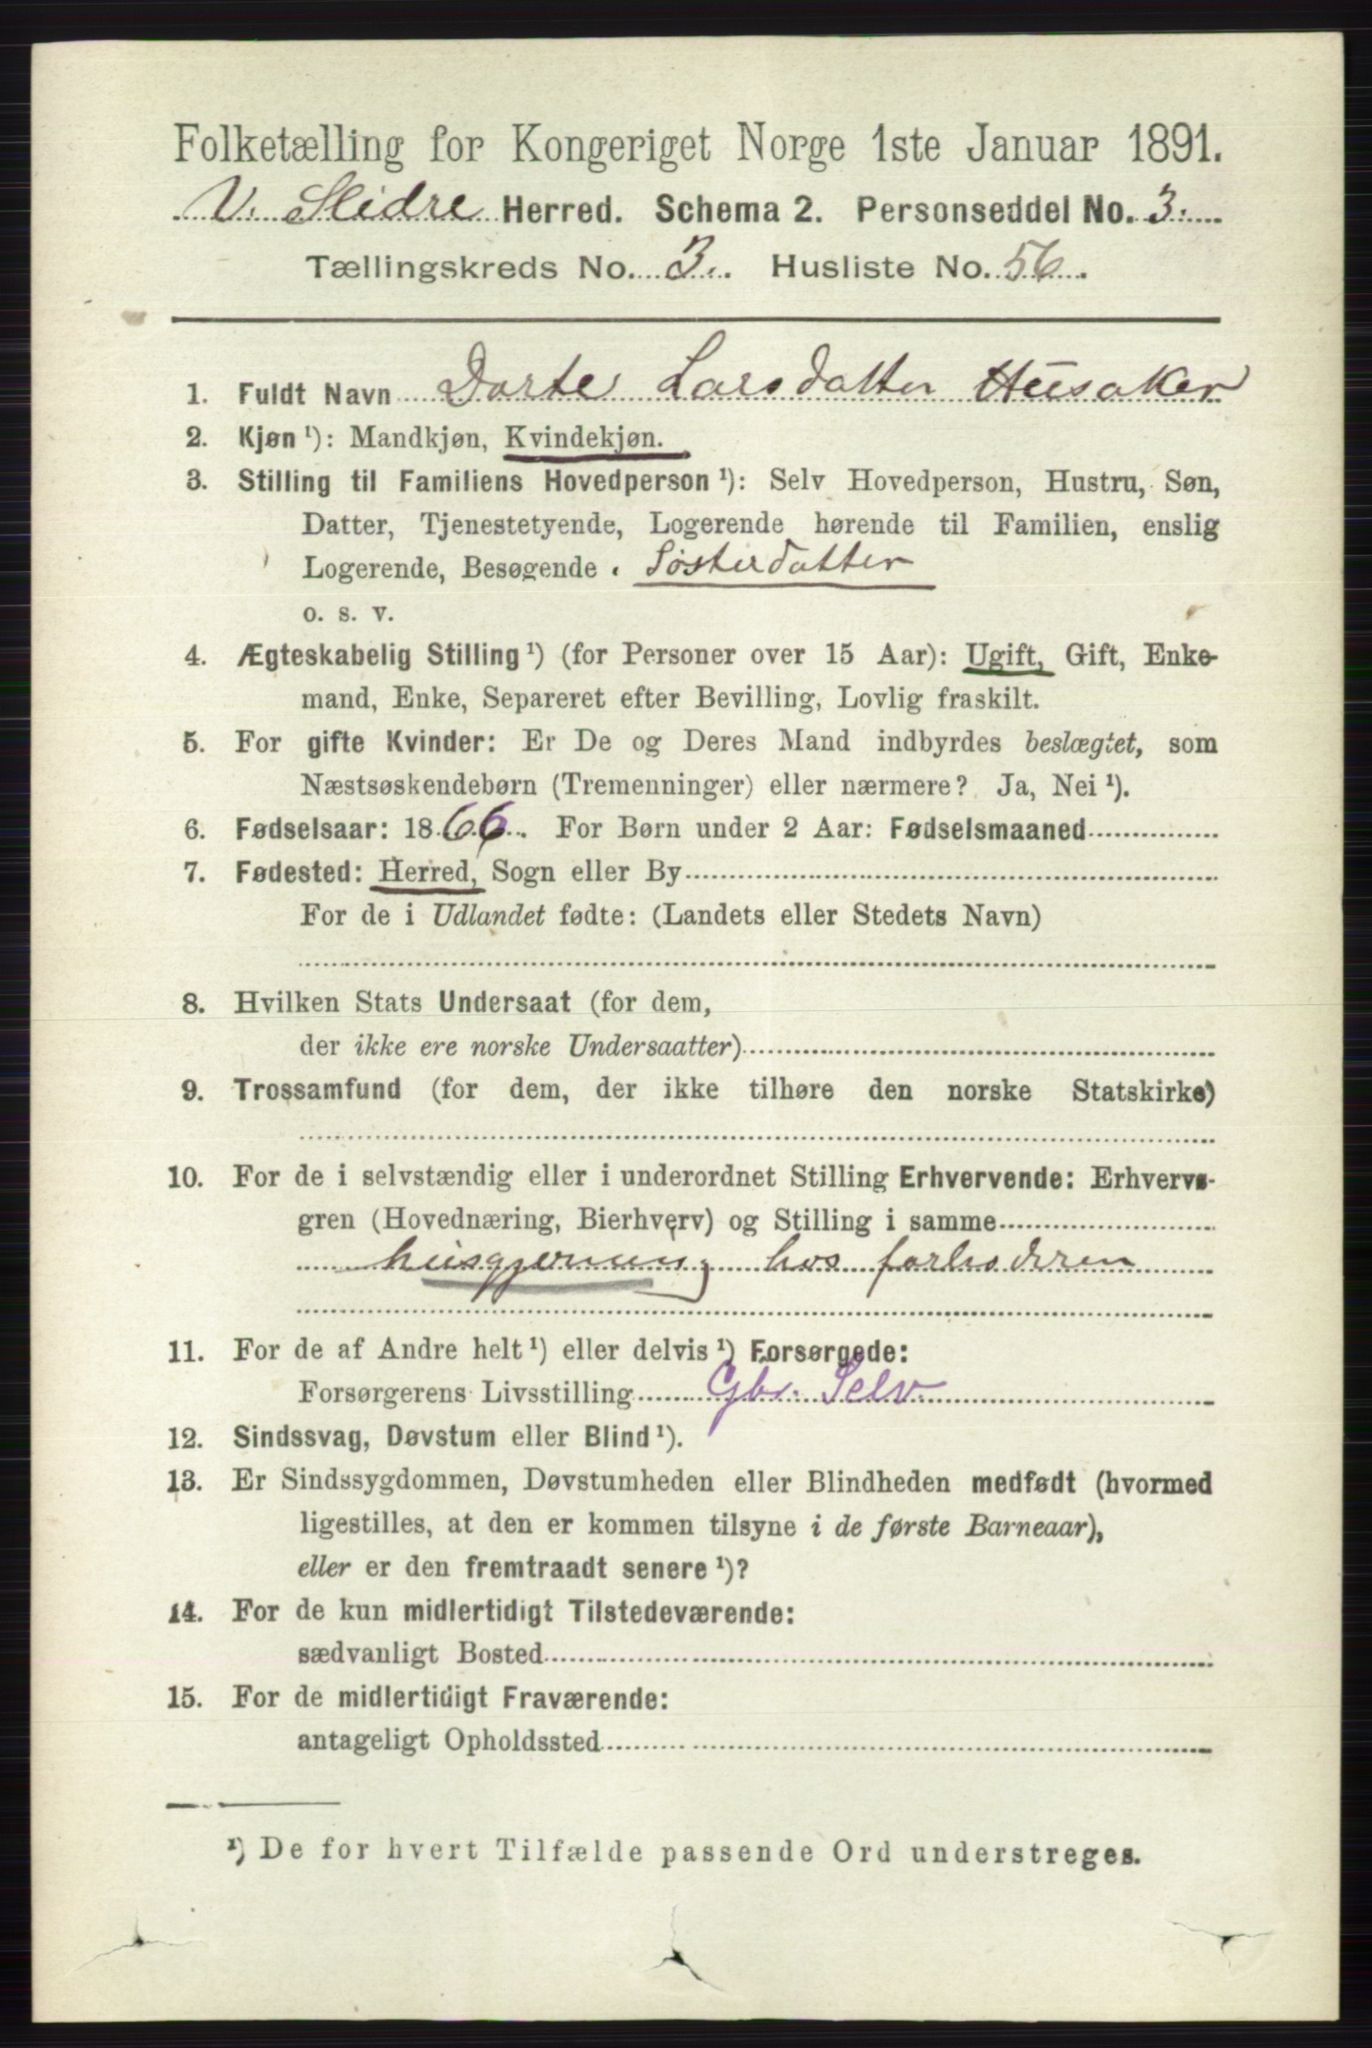 Folketælling for Kongeriget Norge 1ste Januar 1891.
V. Slidre Herred. Schema 2. Personseddel No. 3.
Tællingskreds No. 3. Husliste No. 56.
1. Fuldt Navn Dorte Larsdatter Husaker
2. Kjøn ¹): Mandkjøn, Kvindekjøn.
3. Stilling til Familiens Hovedperson ¹): Selv Hovedperson, Hustru, Søn,
Datter, Tjenestetyende, Logerende hørende til Familien, enslig
Logerende, Besøgende . Søsterdatter
o. s. v.
4. Ægteskabelig Stilling ¹) (for Personer over 15 Aar): Ugift, Gift, Enke-
mand, Enke, Separeret efter Bevilling, Lovlig fraskilt.
5. For gifte Kvinder: Er De og Deres Mand indbyrdes beslægtet, som
Næstsøskendebørn (Tremenninger) eller nærmere? Ja, Nei ¹).
6. Fødselsaar: 1866. For Børn under 2 Aar: Fødselsmaaned
7. Fødested: Herred, Sogn eller By
For de i Udlandet fødte: (Landets eller Stedets Navn)
8. Hvilken Stats Undersaat (for dem,
der ikke ere norske Undersaatter)
9. Trossamfund (for dem, der ikke tilhøre den norske Statskirke)
10. For de i selvstændig eller i underordnet Stilling Erhvervende: Erhvervs-
gren (Hovednæring, Bierhverv) og Stilling i samme
husgjerning hos
11. For de af Andre helt ¹) eller delvis ¹) Forsørgede:
Forsørgerens Livsstilling Gbr. Selv
12. Sindssvag, Døvstum eller Blind ¹).
13. Er Sindssygdommen, Døvstumheden eller Blindheden medfødt (hvormed
ligestilles, at den er kommen tilsyne i de første Barneaar),
eller er den fremtraadt senere ¹)?
14. For de kun midlertidigt Tilstedeværende:
sædvanligt Bosted
15. For de midlertidigt Fraværende:
antageligt Opholdssted
¹) De for hvert Tilfælde passende Ord understreges.